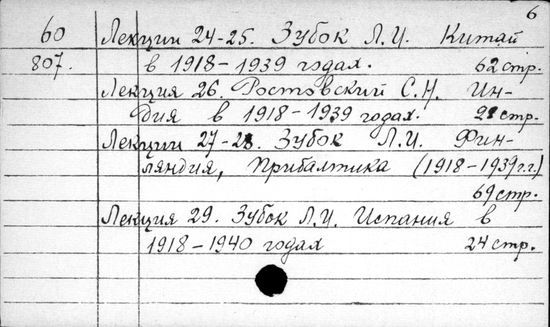 6
60 Лекции 24-25. Зубок Л.И. Китай
807. в 1918-1939 годах. 62 стр.
Лекция 26. Ростовский С.Н. Ин-
дия в 1918-1939 годах. 21 стр.
Лекции 27-28. Зубок Л.И. Фин-
ляндия, Прибалтика (1918-1939 г.г.)
69 стр.
Лекция 29. Зубок Л.И. Испания в
1918-1940 годах 24 стр.